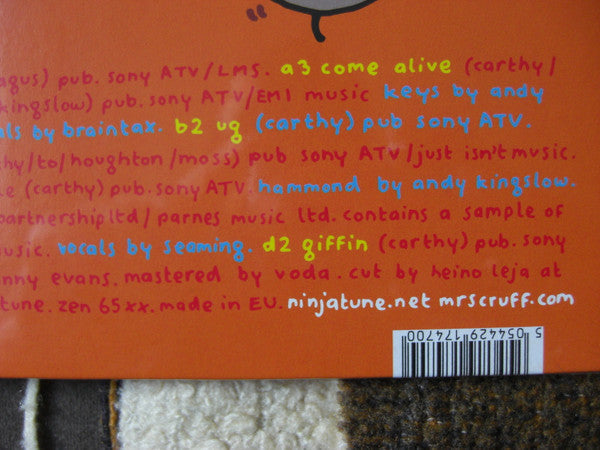 agus) pub. sony ATV/LMS. a3 come alive (carthy/
kingslow) pub. sony ATV/EMI music keys by andy
als by braintax. b2 ug (carthy) pub sony ATV.
hy/to/houghton/moss) pub sony ATV/just isn't music.
le (carthy) pub. sony ATV. hammond by andy kingslow.
partnership ltd/parnes music ltd. contains a sample of
usic. vocals by seaming. d2 giffin (carthy) pub. sony
nny evans. mastered by voda. cut by heino leja at
tune. zen 65xx. made in EU. ninjatune.net mrscruff.com
5 054429 174700